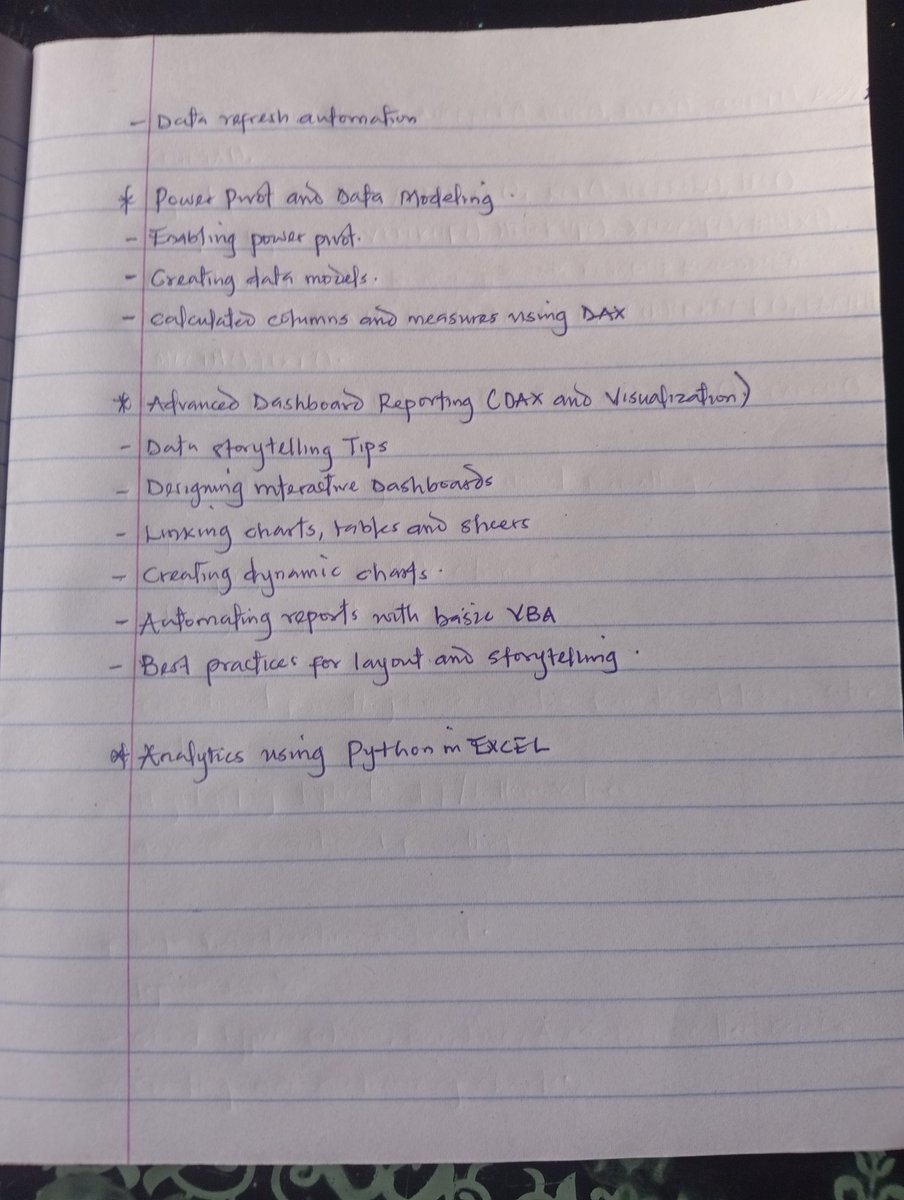 - Data refresh automation
* Power Pivot and Data Modeling.
- Enabling power pivot.
- Creating data models.
- Calculated columns and measures using DAX
* Advanced Dashboard Reporting (DAX and Visualization)
- Data storytelling Tips
- Designing interactive Dashboards
- Linking charts, tables and slicers
- Creating dynamic charts.
- Automating reports with basic VBA
- Best practices for layout and storytelling.
* Analytics using Python in EXCEL